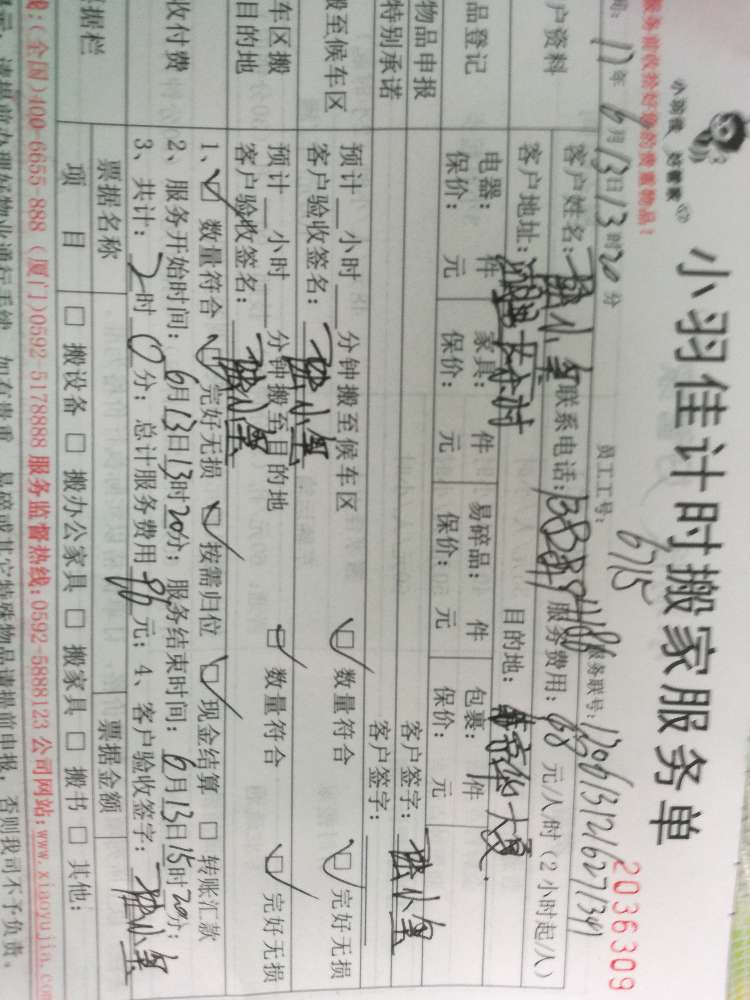 小羽佳 好管家
小羽佳计时搬家服务单
2036309
服务前收拾好您的贵重物品！
17年6月13日13时20分
员工工号：6715
服务联号：
户资料
客户姓名：
联系电话：
服务费用：68元/人/时（2小时起/人）
客户地址：
目的地：
品登记
电器： 件 家具： 件 易碎品： 件 包裹： 件
保价： 元 保价： 元 保价： 元 保价： 元
物品申报
客户签字：
特别承诺
客户签字：
搬至候车区
预计 小时 分钟搬至候车区 □数量符合 □完好无损
客户验收签名：
车区搬
目的地
预计 小时 分钟搬至目的地 □数量符合 □完好无损
客户验收签名：
收付费
1、□数量符合 □完好无损 □按需归位 □现金结算 □转账汇款
2、服务开始时间：6月13日13时20分；服务结束时间：6月13日15时20分；
3、共计：2时0分；总计服务费用 元；4、客户验收签字：
据栏
票据名称 票据金额
项 目 □搬设备 □搬办公家具 □搬家具 □搬书 □其他：
线：(全国)400-6655 888 (厦门)0592 5178888 服务监督热线：0592-5888123 公司网站：www.xiaoyujia.com
请提前办理好物业通行手续，如有贵重、易碎或其它特殊物品请提前申报，否则我司不予负责。